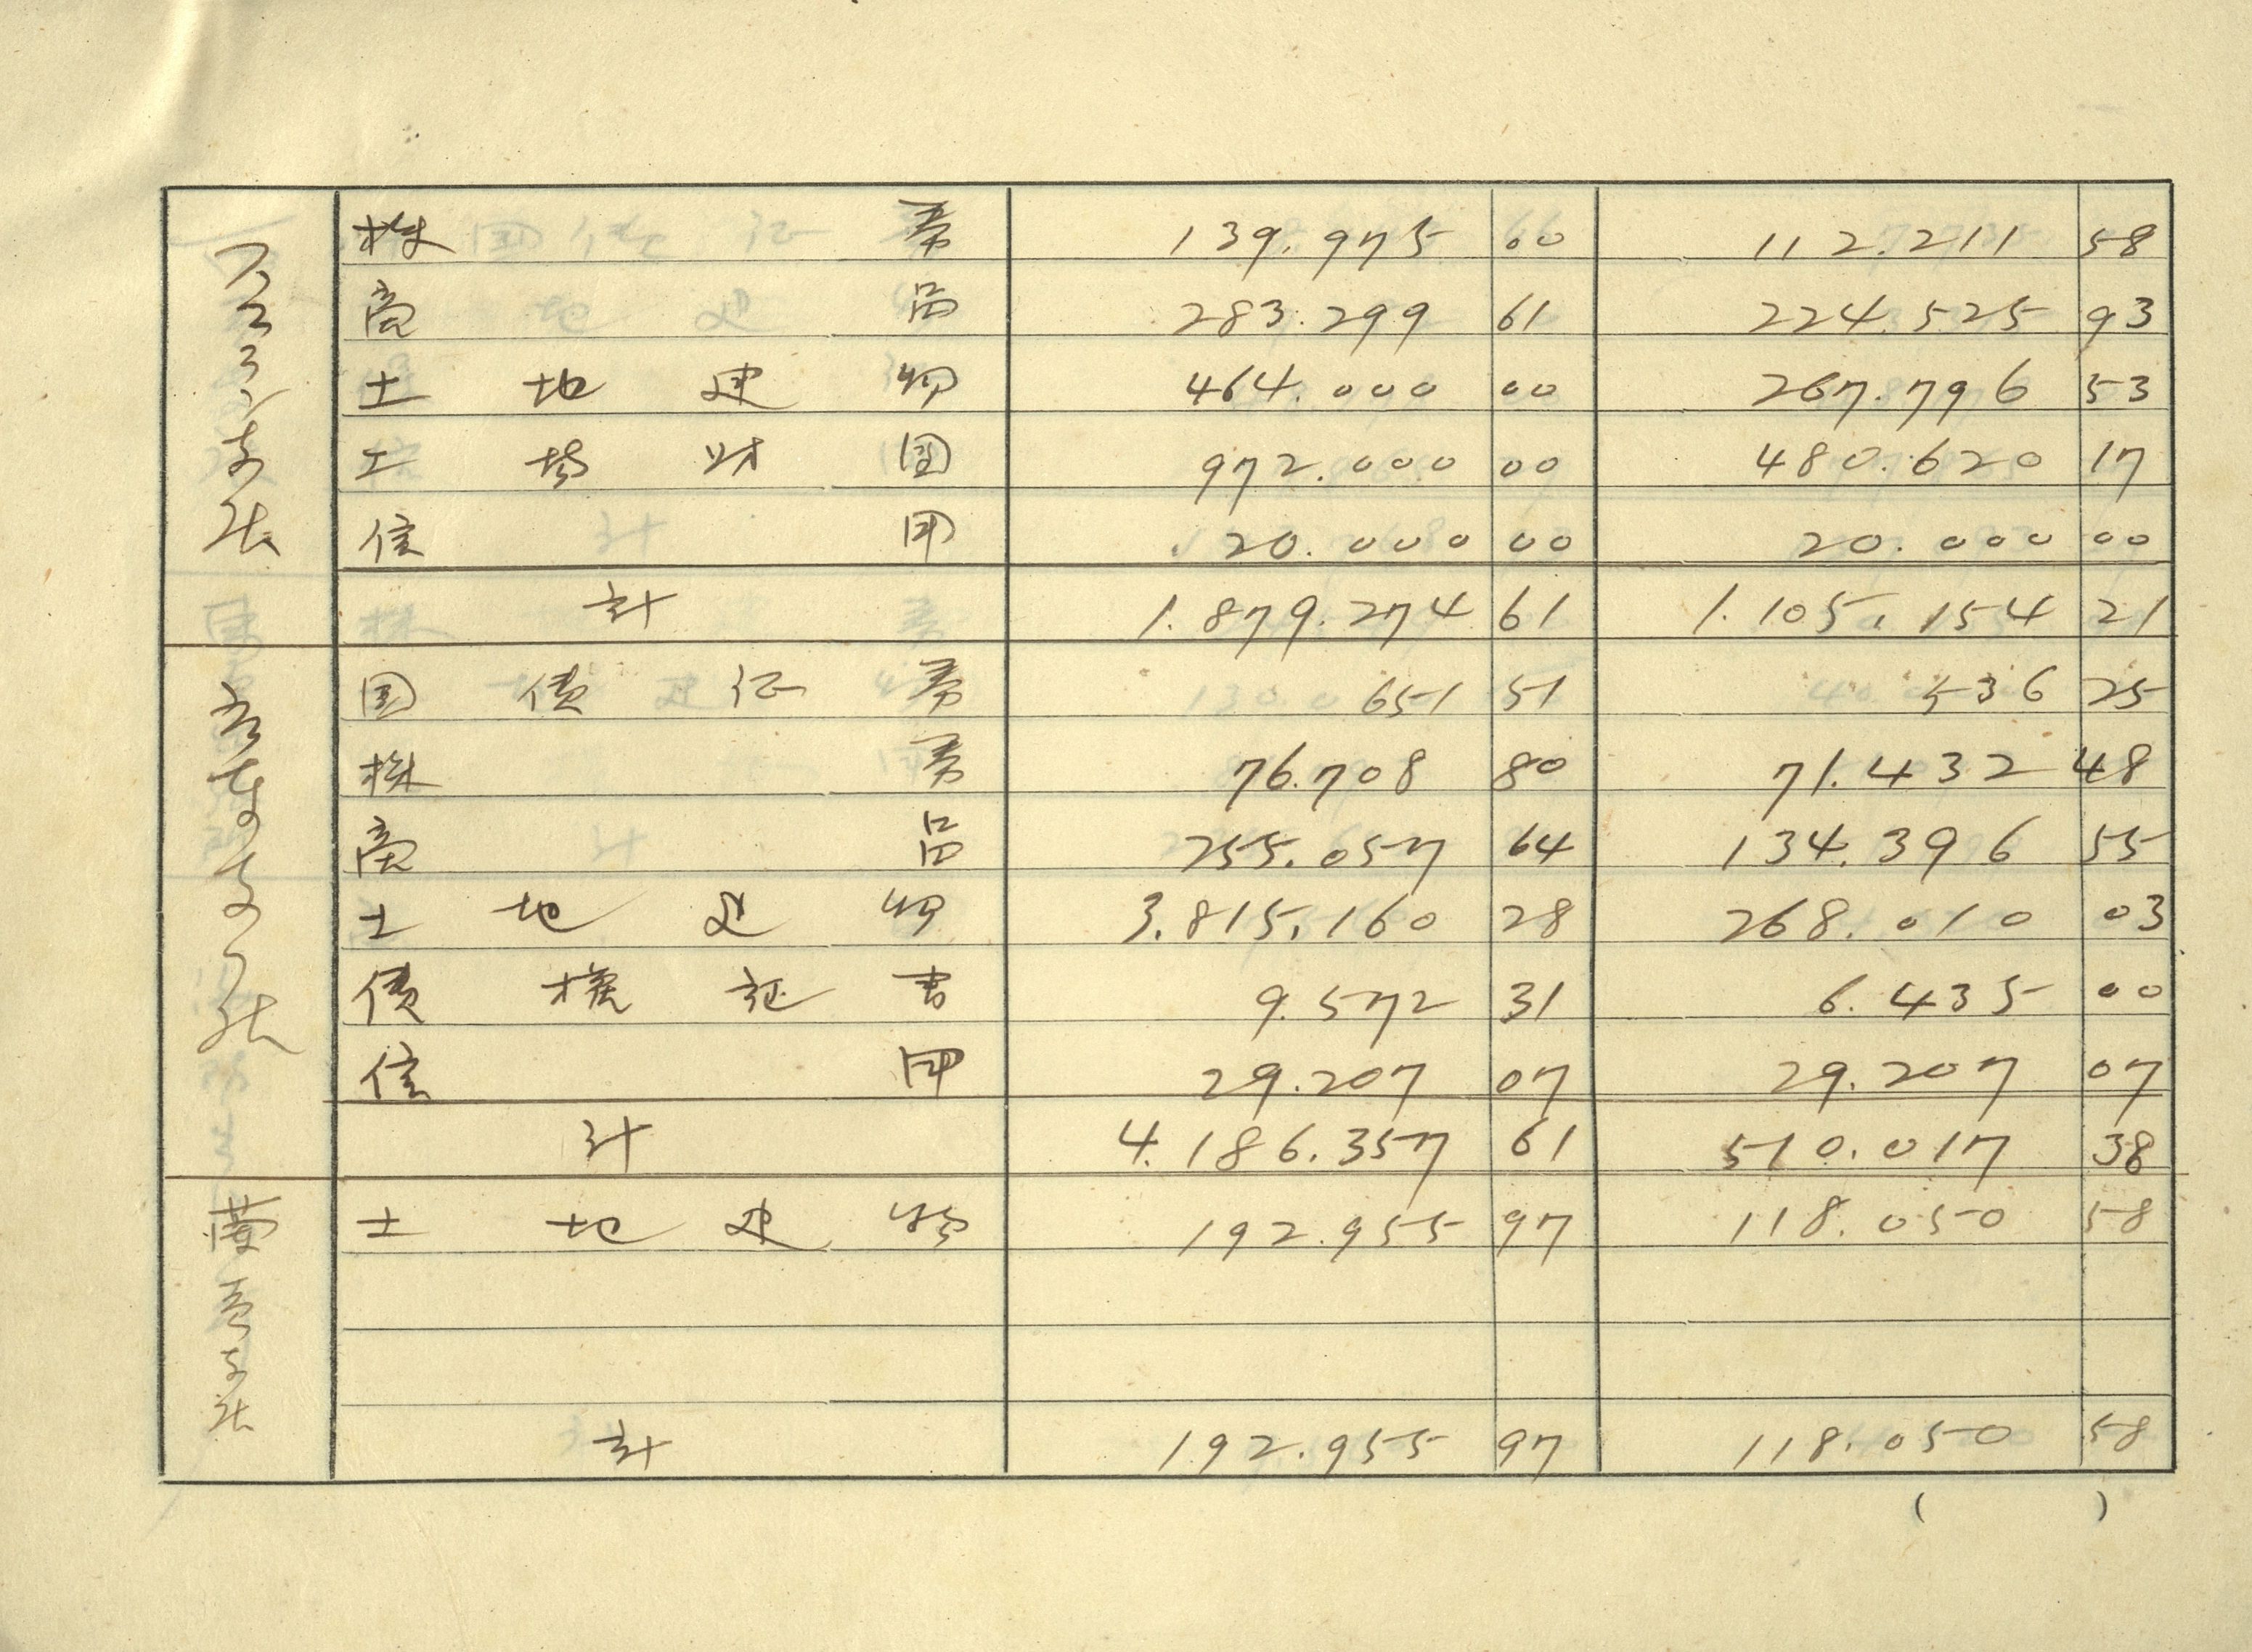 株 券 139.975 00 112.211 58
商 品 283.299 61 224.525 93
土 地 建 物 464.000 00 267.796 53
工 場 財 団 972.000 00 480.620 17
信 用 20.000 00 20.000 00
計 1.879.274 61 1.105.154 21
国 債 証 券 651 51 536 25
株 券 76.708 80 71.432 48
商 品 255.057 64 134.396 55
土 地 建 物 3.815.160 28 268.010 03
債 権 証 書 9.572 31 6.435 00
信 用 29.207 07 29.207 07
計 4.186.357 61 510.017 38
土 地 建 物 192.955 97 118.050 58
計 192.955 97 118.050 58
( )